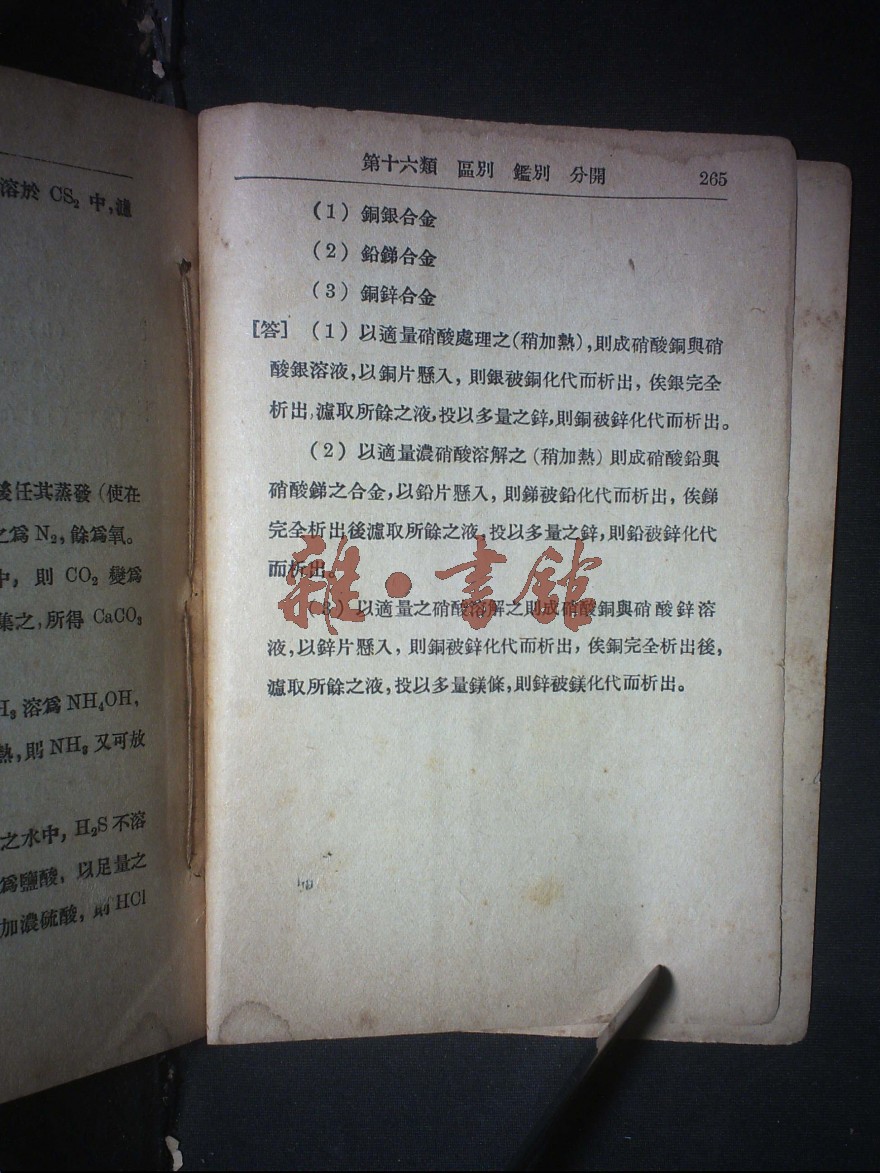 溶於 CS₂ 中,濾
後任其蒸發(使在
之爲 N₂,餘爲氧。
中, 則 CO₂ 變爲
集之,所得 CaCO₃
H₃ 溶爲 NH₄OH,
熱,則 NH₃ 又可放
之水中, H₂S 不溶
爲鹽酸, 以足量之
加濃硫酸, 則 HCl
第十六類 區別 鑑別 分開 265
(1) 銅銀合金
(2) 鉛銻合金
(3) 銅鋅合金
[答] (1) 以適量硝酸處理之(稍加熱),則成硝酸銅與硝
酸銀溶液,以銅片懸入, 則銀被銅化代而析出, 俟銀完全
析出,濾取所餘之液,投以多量之鋅,則銅被鋅化代而析出。
(2) 以適量濃硝酸溶解之(稍加熱)則成硝酸鉛與
硝酸銻之合金,以鉛片懸入, 則銻被鉛化代而析出, 俟銻
完全析出後濾取所餘之液,投以多量之鋅,則鉛被鋅化代
而析出。
(3) 以適量之硝酸溶解之則成硝酸銅與硝酸鋅溶
液,以鋅片懸入, 則銅被鋅化代而析出, 俟銅完全析出後,
濾取所餘之液,投以多量鎂條,則鋅被鎂化代而析出。
雜·書館